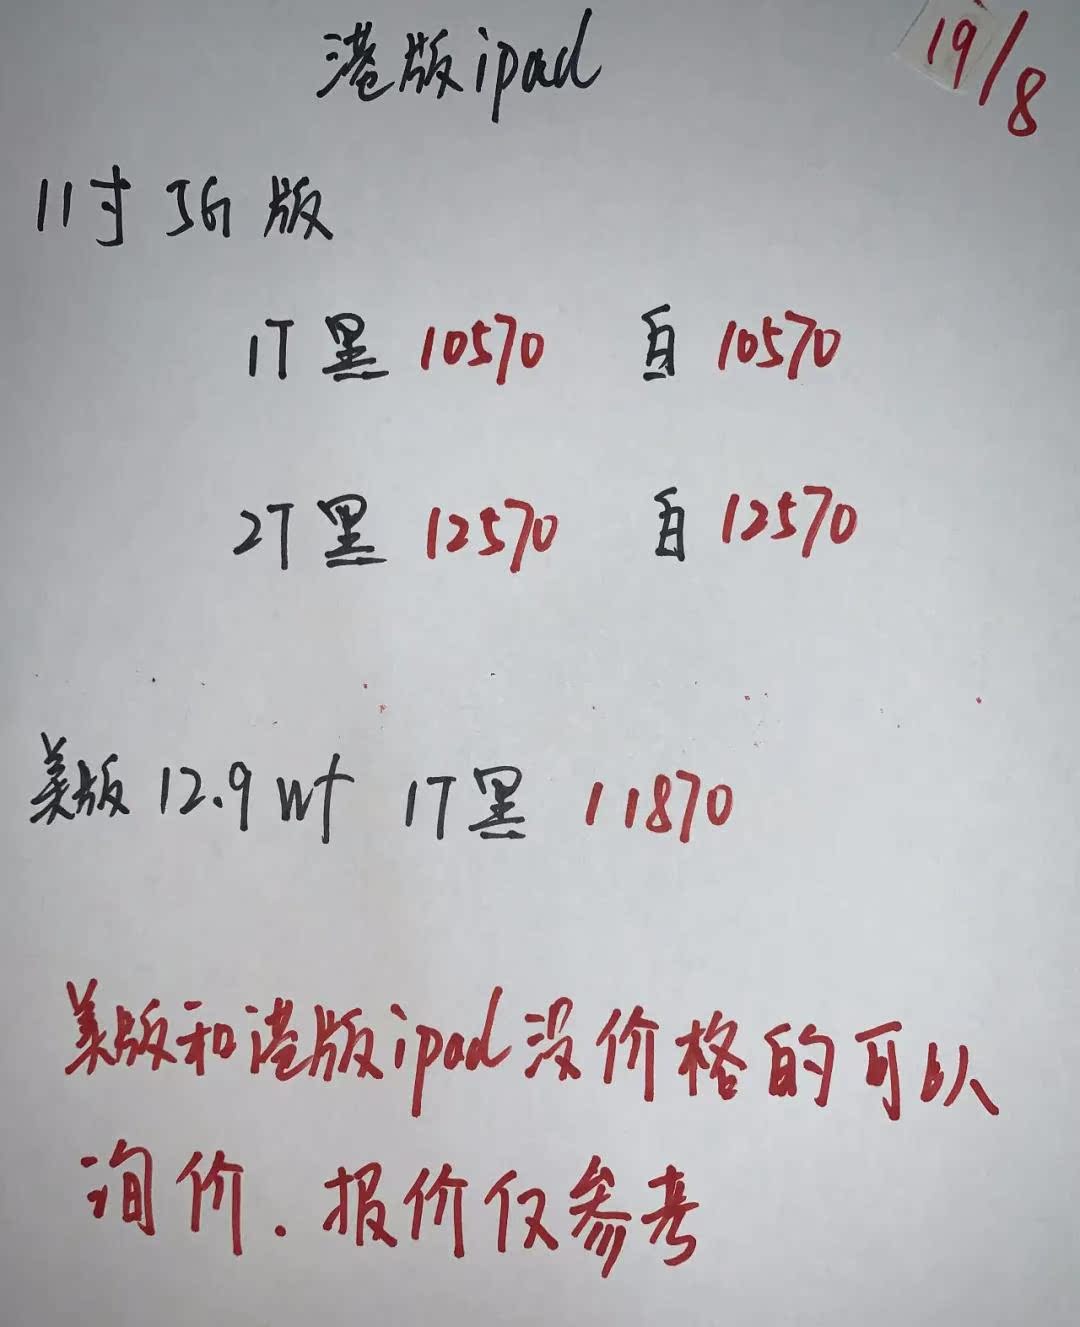 港版ipad 19/8
11寸 5G 版
1T 黑 10570 白 10570
2T 黑 12570 白 12570
美版 12.9 wf 1T 黑 11870
美版和港版ipad没价格的可以
询价.报价仅参考